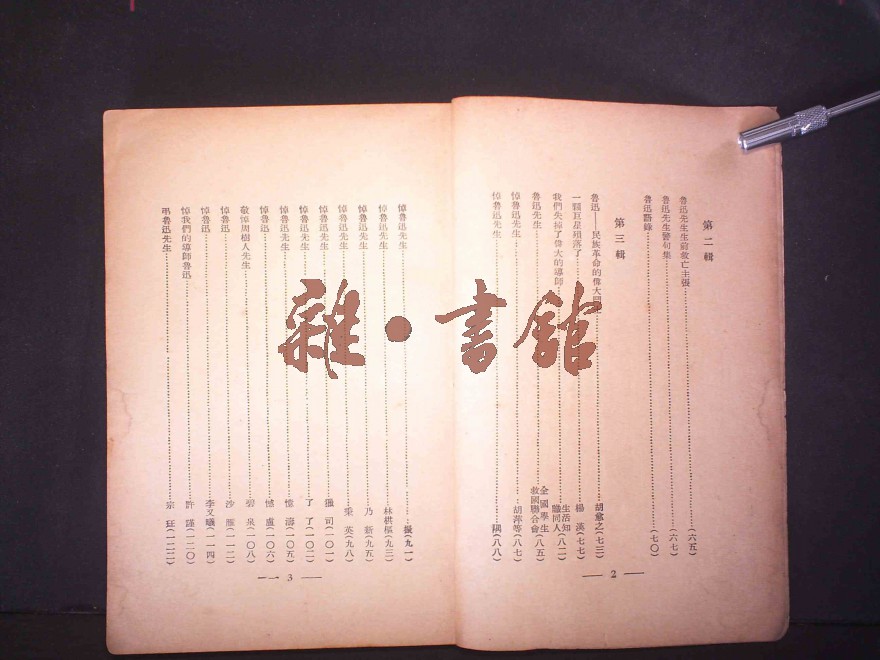 第二輯
魯迅先生生前救亡主張……(六五)
魯迅先生警句集……(六七)
魯迅語錄……(七〇)
第三輯
魯迅——民族革命的偉大……胡愈之(七三)
一顆巨星殞落了……楊漢(七七)
我們失掉了偉大的導師……生活知識同人(八二)
魯迅先生……全國學生救國聯合會(八五)
悼魯迅先生……胡萍等(八七)
悼魯迅先生……(八八)
— 2 —
悼魯迅先生……(九一)
悼魯迅先生……林栱樞(九三)
悼魯迅先生……乃新(九五)
悼魯迅先生……秉英(九八)
悼魯迅先生……司(一〇一)
悼魯迅先生……了了(一〇二)
悼魯迅先生……憶濤(一〇五)
悼魯迅……憾廬(一〇六)
敬悼周樹人先生……碧泉(一〇八)
悼魯迅……沙雁(一一二)
悼魯迅……李又曦(一一四)
悼我們的導師魯迅……許瑾(一二〇)
弔魯迅先生……宗玨(一二二)
— 3 —
雜·書館